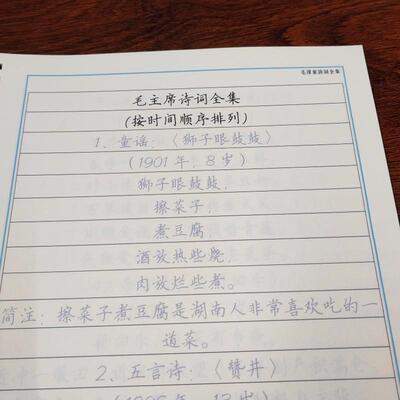 毛泽东诗词全集
毛主席诗词全集
(按时间顺序排列)
1、童谣:〈狮子眼鼓鼓〉
(1901年,8岁)
狮子眼鼓鼓,
擦菜子,
煮豆腐
酒放热些烧,
肉放烂些煮。
简注:擦菜子煮豆腐是湖南人非常喜欢吃的一
道菜。
2、五言诗:〈赞井〉
(1906年,13岁)